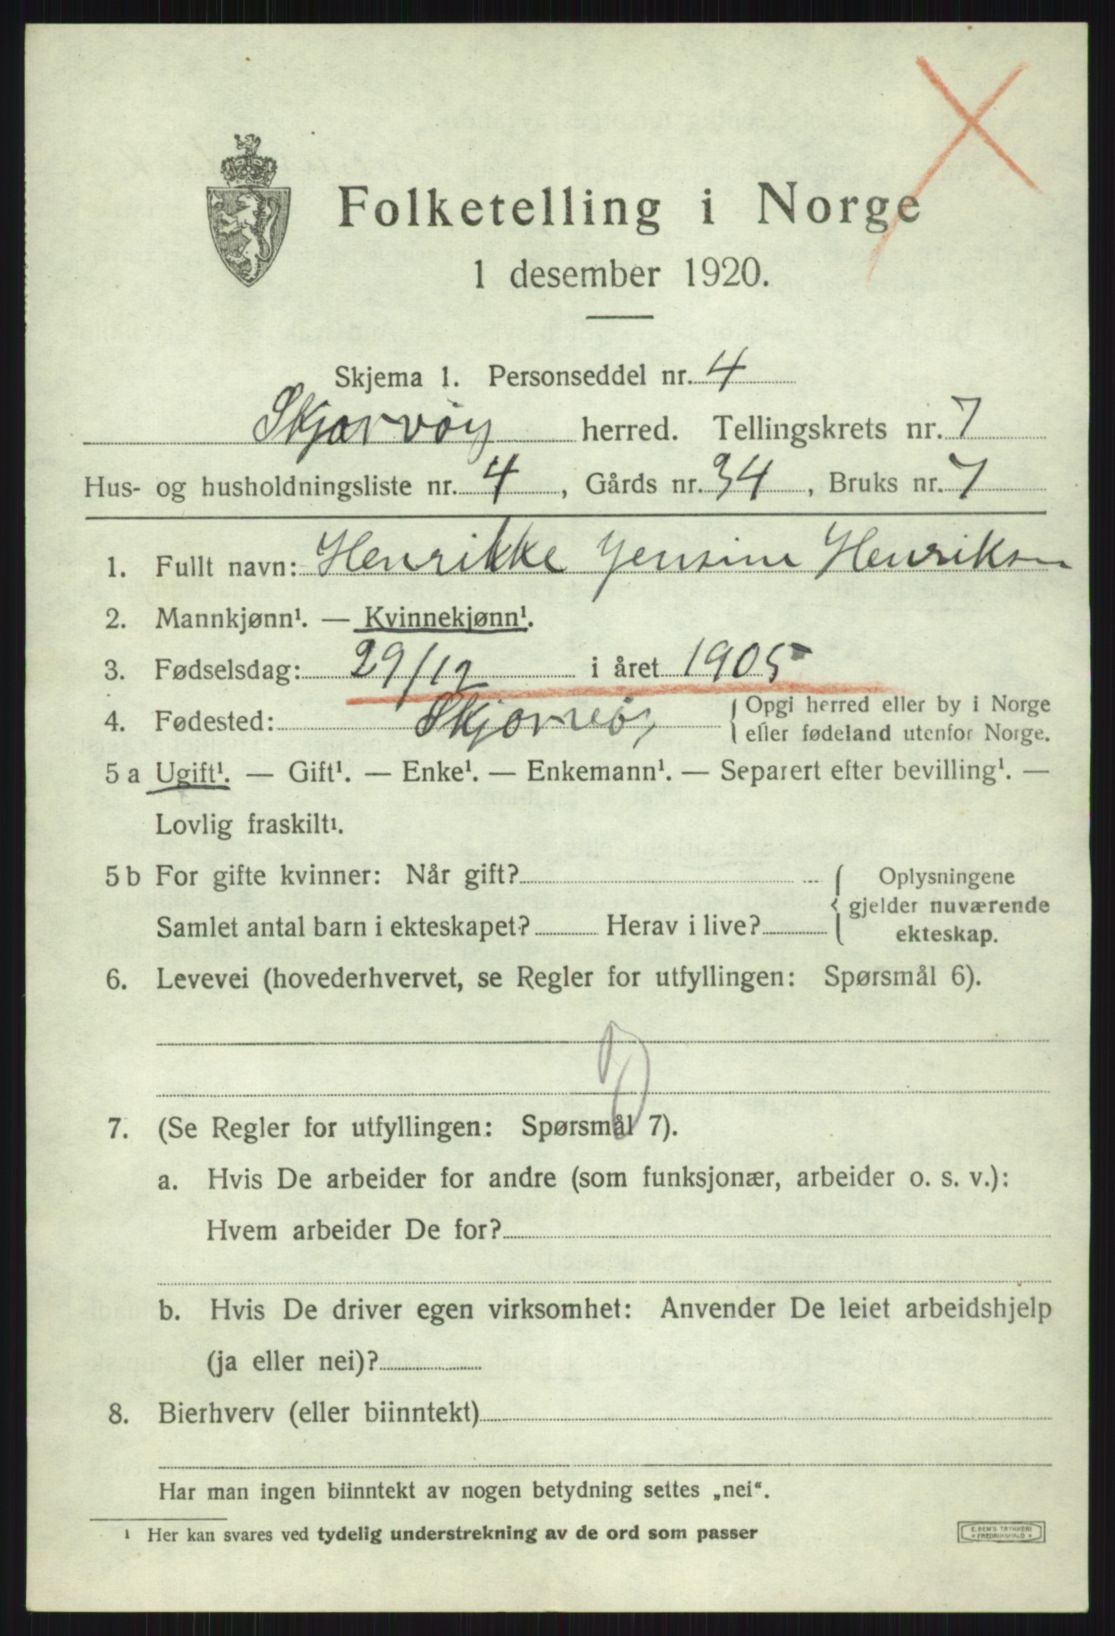 Folketelling i Norge
1 desember 1920.
Skjema 1. Personseddel nr. 4
Skjærvöy herred. Tellingskrets nr. 7
Hus- og husholdningsliste nr. 4, Gårds nr. 34, Bruks nr. 7
1. Fullt navn: Henrikke Jensine Henriksen
2. Mannkjønn¹. — Kvinnekjønn¹.
3. Fødselsdag: 29/12 i året 1905
4. Fødested: Skjærvöy { Opgi herred eller by i Norge
eller fødeland utenfor Norge.
5 a Ugift¹. — Gift¹. — Enke¹. — Enkemann¹. — Separert efter bevilling¹. —
Lovlig fraskilt¹.
5 b For gifte kvinner: Når gift? { Oplysningene
gjelder nuværende
Samlet antal barn i ekteskapet? Herav i live? ekteskap.
6. Levevei (hovederhvervet, se Regler for utfyllingen: Spørsmål 6).
7. (Se Regler for utfyllingen: Spørsmål 7).
a. Hvis De arbeider for andre (som funksjonær, arbeider o. s. v.):
Hvem arbeider De for?
b. Hvis De driver egen virksomhet: Anvender De leiet arbeidshjelp
(ja eller nei)?
8. Bierhverv (eller biinntekt)
Har man ingen biinntekt av nogen betydning settes „nei“.
¹ Her kan svares ved tydelig understrekning av de ord som passer